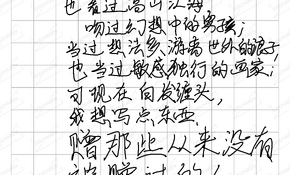 也看过高山江海,
吻过幻想中的男孩;
当过想法多、游离世外的浪子,
也当过敏感独行的画家;
可现在白发缠头,
我想写点东西,
赠那些从来没有
被赠过的人